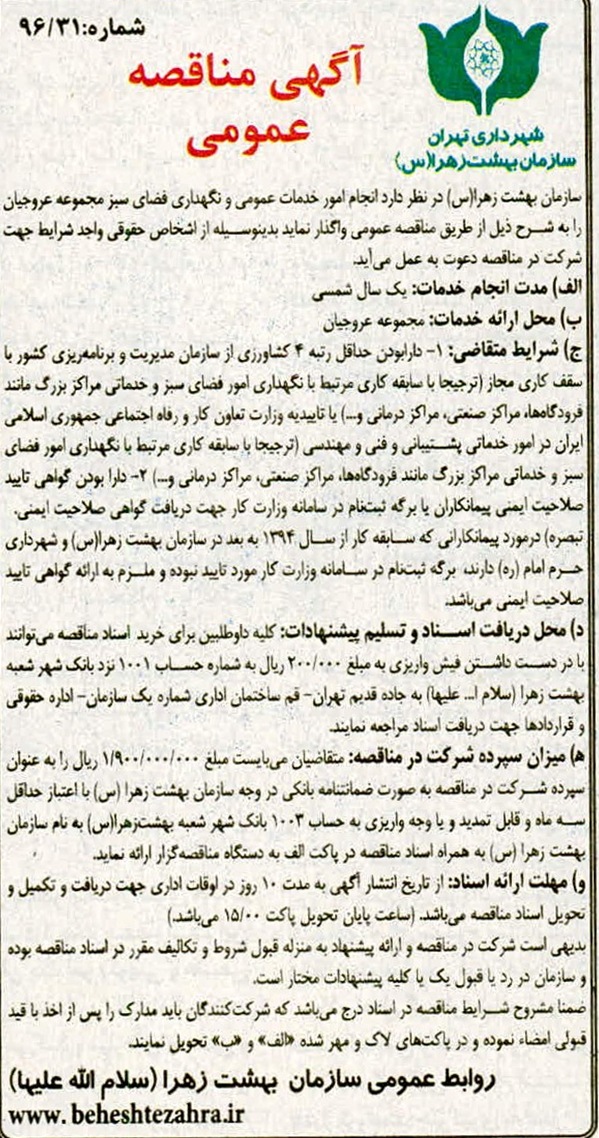 شماره: ۹۶/۳۱
آگهی مناقصه
عمومی
شهرداری تهران
سازمان بهشت زهرا(س)
سازمان بهشت زهرا(س) در نظر دارد انجام امور خدمات عمومی و نگهداری فضای سبز مجموعه عروجیان
را به شرح ذیل از طریق مناقصه عمومی واگذار نماید بدینوسیله از اشخاص حقوقی واجد شرایط جهت
شرکت در مناقصه دعوت به عمل می‌آید.
الف) مدت انجام خدمات: یک سال شمسی
ب) محل ارائه خدمات: مجموعه عروجیان
ج) شرایط متقاضی: ۱- دارابودن حداقل رتبه ۴ کشاورزی از سازمان مدیریت و برنامه‌ریزی کشور با
سقف کاری مجاز (ترجیحا با سابقه کاری مرتبط با نگهداری امور فضای سبز و خدماتی مراکز بزرگ مانند
فرودگاه‌ها، مراکز صنعتی، مراکز درمانی و...) یا تاییدیه وزارت تعاون کار و رفاه اجتماعی جمهوری اسلامی
ایران در امور خدماتی پشتیبانی و فنی و مهندسی (ترجیحا با سابقه کاری مرتبط با نگهداری امور فضای
سبز و خدماتی مراکز بزرگ مانند فرودگاه‌ها، مراکز صنعتی، مراکز درمانی و...) ۲- دارا بودن گواهی تایید
صلاحیت ایمنی پیمانکاران یا برگه ثبت‌نام در سامانه وزارت کار جهت دریافت گواهی صلاحیت ایمنی.
تبصره) درمورد پیمانکارانی که سابقه کار از سال ۱۳۹۴ به بعد در سازمان بهشت زهرا(س) و شهرداری
حرم امام (ره) دارند، برگه ثبت‌نام در سامانه وزارت کار مورد تایید نبوده و ملزم به ارائه گواهی تایید
صلاحیت ایمنی می‌باشد.
د) محل دریافت اسناد و تسلیم پیشنهادات: کلیه داوطلبین برای خرید اسناد مناقصه می‌توانند
با در دست داشتن فیش واریزی به مبلغ ۲۰۰/۰۰۰ ریال به شماره حساب ۱۰۰۱ نزد بانک شهر شعبه
بهشت زهرا (سلام ا... علیها) به جاده قدیم تهران- قم ساختمان اداری شماره یک سازمان- اداره حقوقی
و قراردادها جهت دریافت اسناد مراجعه نمایند.
ه) میزان سپرده شرکت در مناقصه: متقاضیان می‌بایست مبلغ ۱/۹۰۰/۰۰۰/۰۰۰ ریال را به عنوان
سپرده شرکت در مناقصه به صورت ضمانتنامه بانکی در وجه سازمان بهشت زهرا (س) با اعتبار حداقل
سه ماه و قابل تمدید و یا وجه واریزی به حساب ۱۰۰۳ بانک شهر شعبه بهشت‌زهرا(س) به نام سازمان
بهشت زهرا (س) به همراه اسناد مناقصه در پاکت الف به دستگاه مناقصه‌گزار ارائه نماید.
و) مهلت ارائه اسناد: از تاریخ انتشار آگهی به مدت ۱۰ روز در اوقات اداری جهت دریافت و تکمیل و
تحویل اسناد مناقصه می‌باشد. (ساعت پایان تحویل پاکت ۱۵/۰۰ می‌باشد.)
بدیهی است شرکت در مناقصه و ارائه پیشنهاد به منزله قبول شروط و تکالیف مقرر در اسناد مناقصه بوده
و سازمان در رد یا قبول یک یا کلیه پیشنهادات مختار است.
ضمنا مشروح شرایط مناقصه در اسناد درج می‌باشد که شرکت‌کنندگان باید مدارک را پس از اخذ با قید
قبولی امضاء نموده و در پاکت‌های لاک و مهر شده «الف» و «ب» تحویل نمایند.
روابط عمومی سازمان بهشت زهرا (سلام الله علیها)
www.beheshtezahra.ir